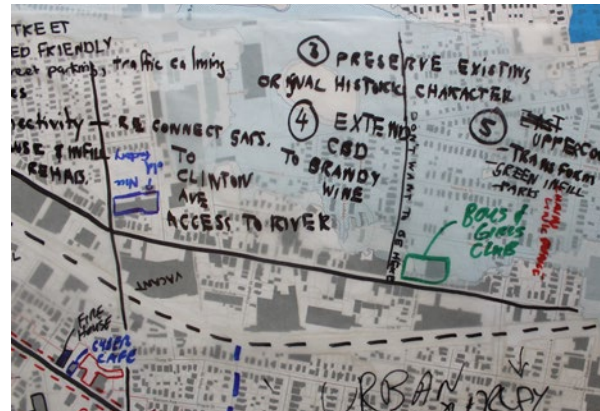 TREET
ED FRIENDLY
reet parking, traffic calming
es
ectivity - RE CONNECT GAPS.
NSE & INFILL
REHABS.
TO
CLINTON
AVE
ACCESS TO RIVER
old factory
New
3 PRESERVE EXISTING
ORIGINAL HISTORIC CHARACTER
4 EXTEND
CBD
TO BRANDY
WINE
DON'T WANT TO BE HERE
5 EAST
UPPER CO
- TRANSFORM
- GREEN INFILL
- PARKS
BOYS &
GIRLS
CLUB
VACANT
FIRE
HOUSE
CYBER
CAFE
RBAN